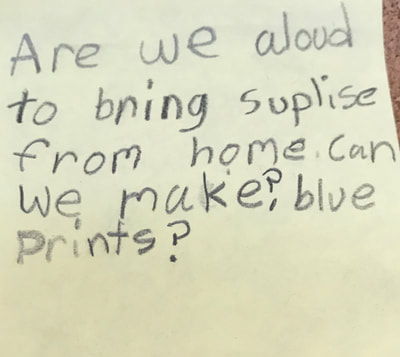 Are we aloud
to bring suplise
from home. Can
we make? blue
prints?